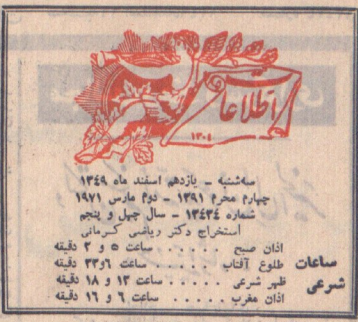 اطلاعات
۱۳۰۴
سه‌شنبه - یازدهم اسفند ماه ۱۳۴۹
چهارم محرم ۱۳۹۱ - دوم مارس ۱۹۷۱
شماره ۱۳۴۳۴ - سال چهل و پنجم
استخراج دکتر ریاضی کرمانی
ساعات شرعی
اذان صبح . . . . . ساعت ۵ و ۲ دقیقه
طلوع آفتاب . . . . . ساعت ۶و۳۳ دقیقه
ظهر شرعی . . . . . ساعت ۱۲ و ۱۸ دقیقه
اذان مغرب . . . . . ساعت ۶ و ۱۶ دقیقه